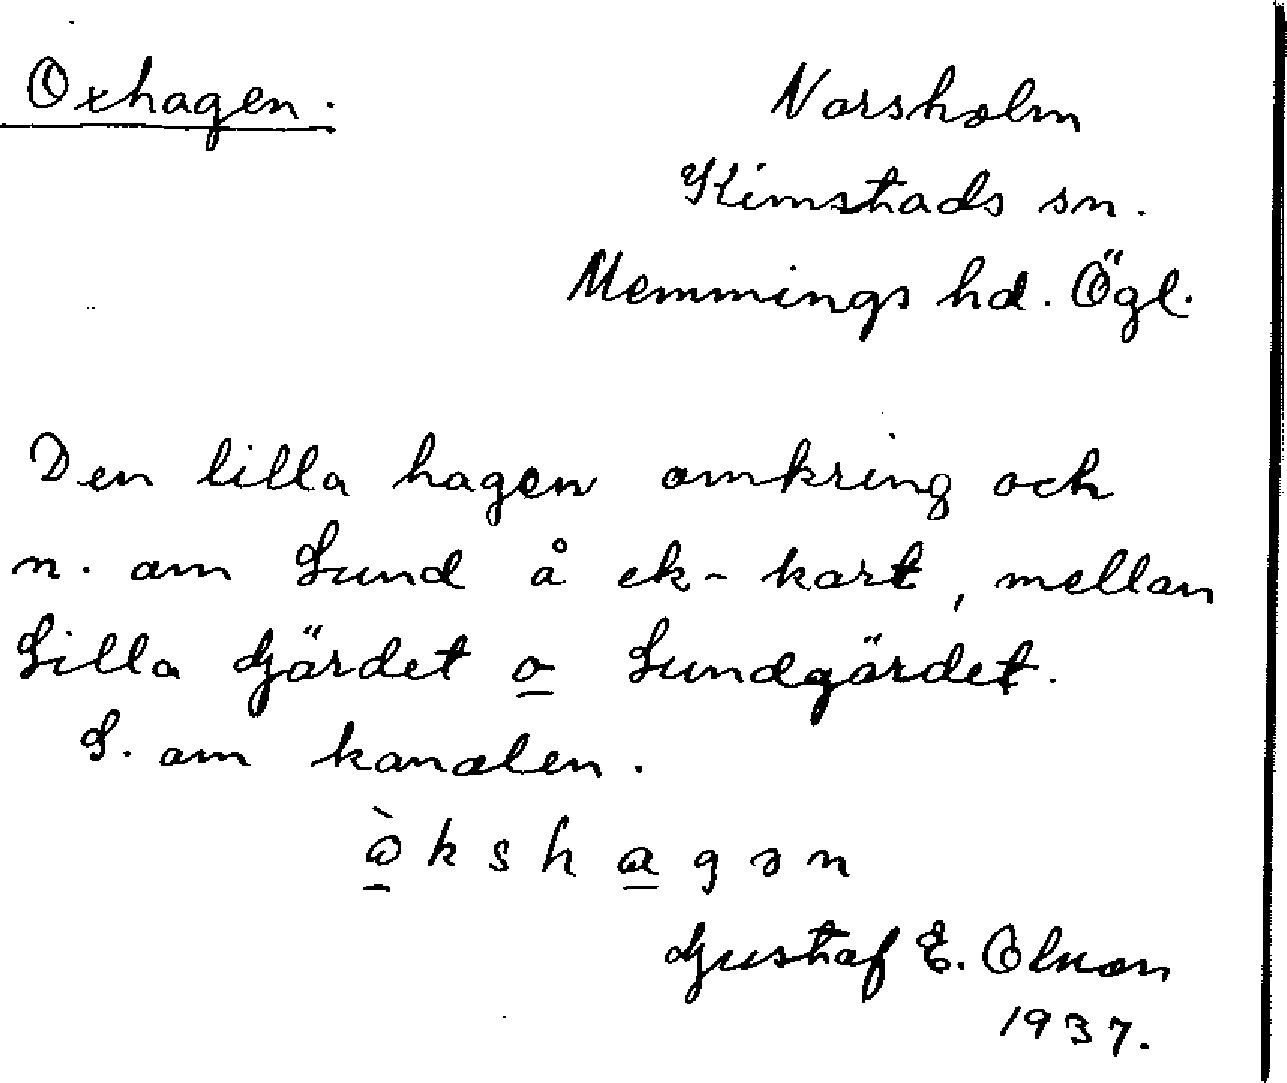 Oxhagen.
Norsholm
Kimstads sn.
Memmings hd. Ögl.
Den lilla hagen omkring och
n. om Lund å ek-kart, mellan
Lilla Gärdet o Lundgärdet.
S. om kanalen.
ò k s h a g ə n
Gustaf E. Olsson
1937.